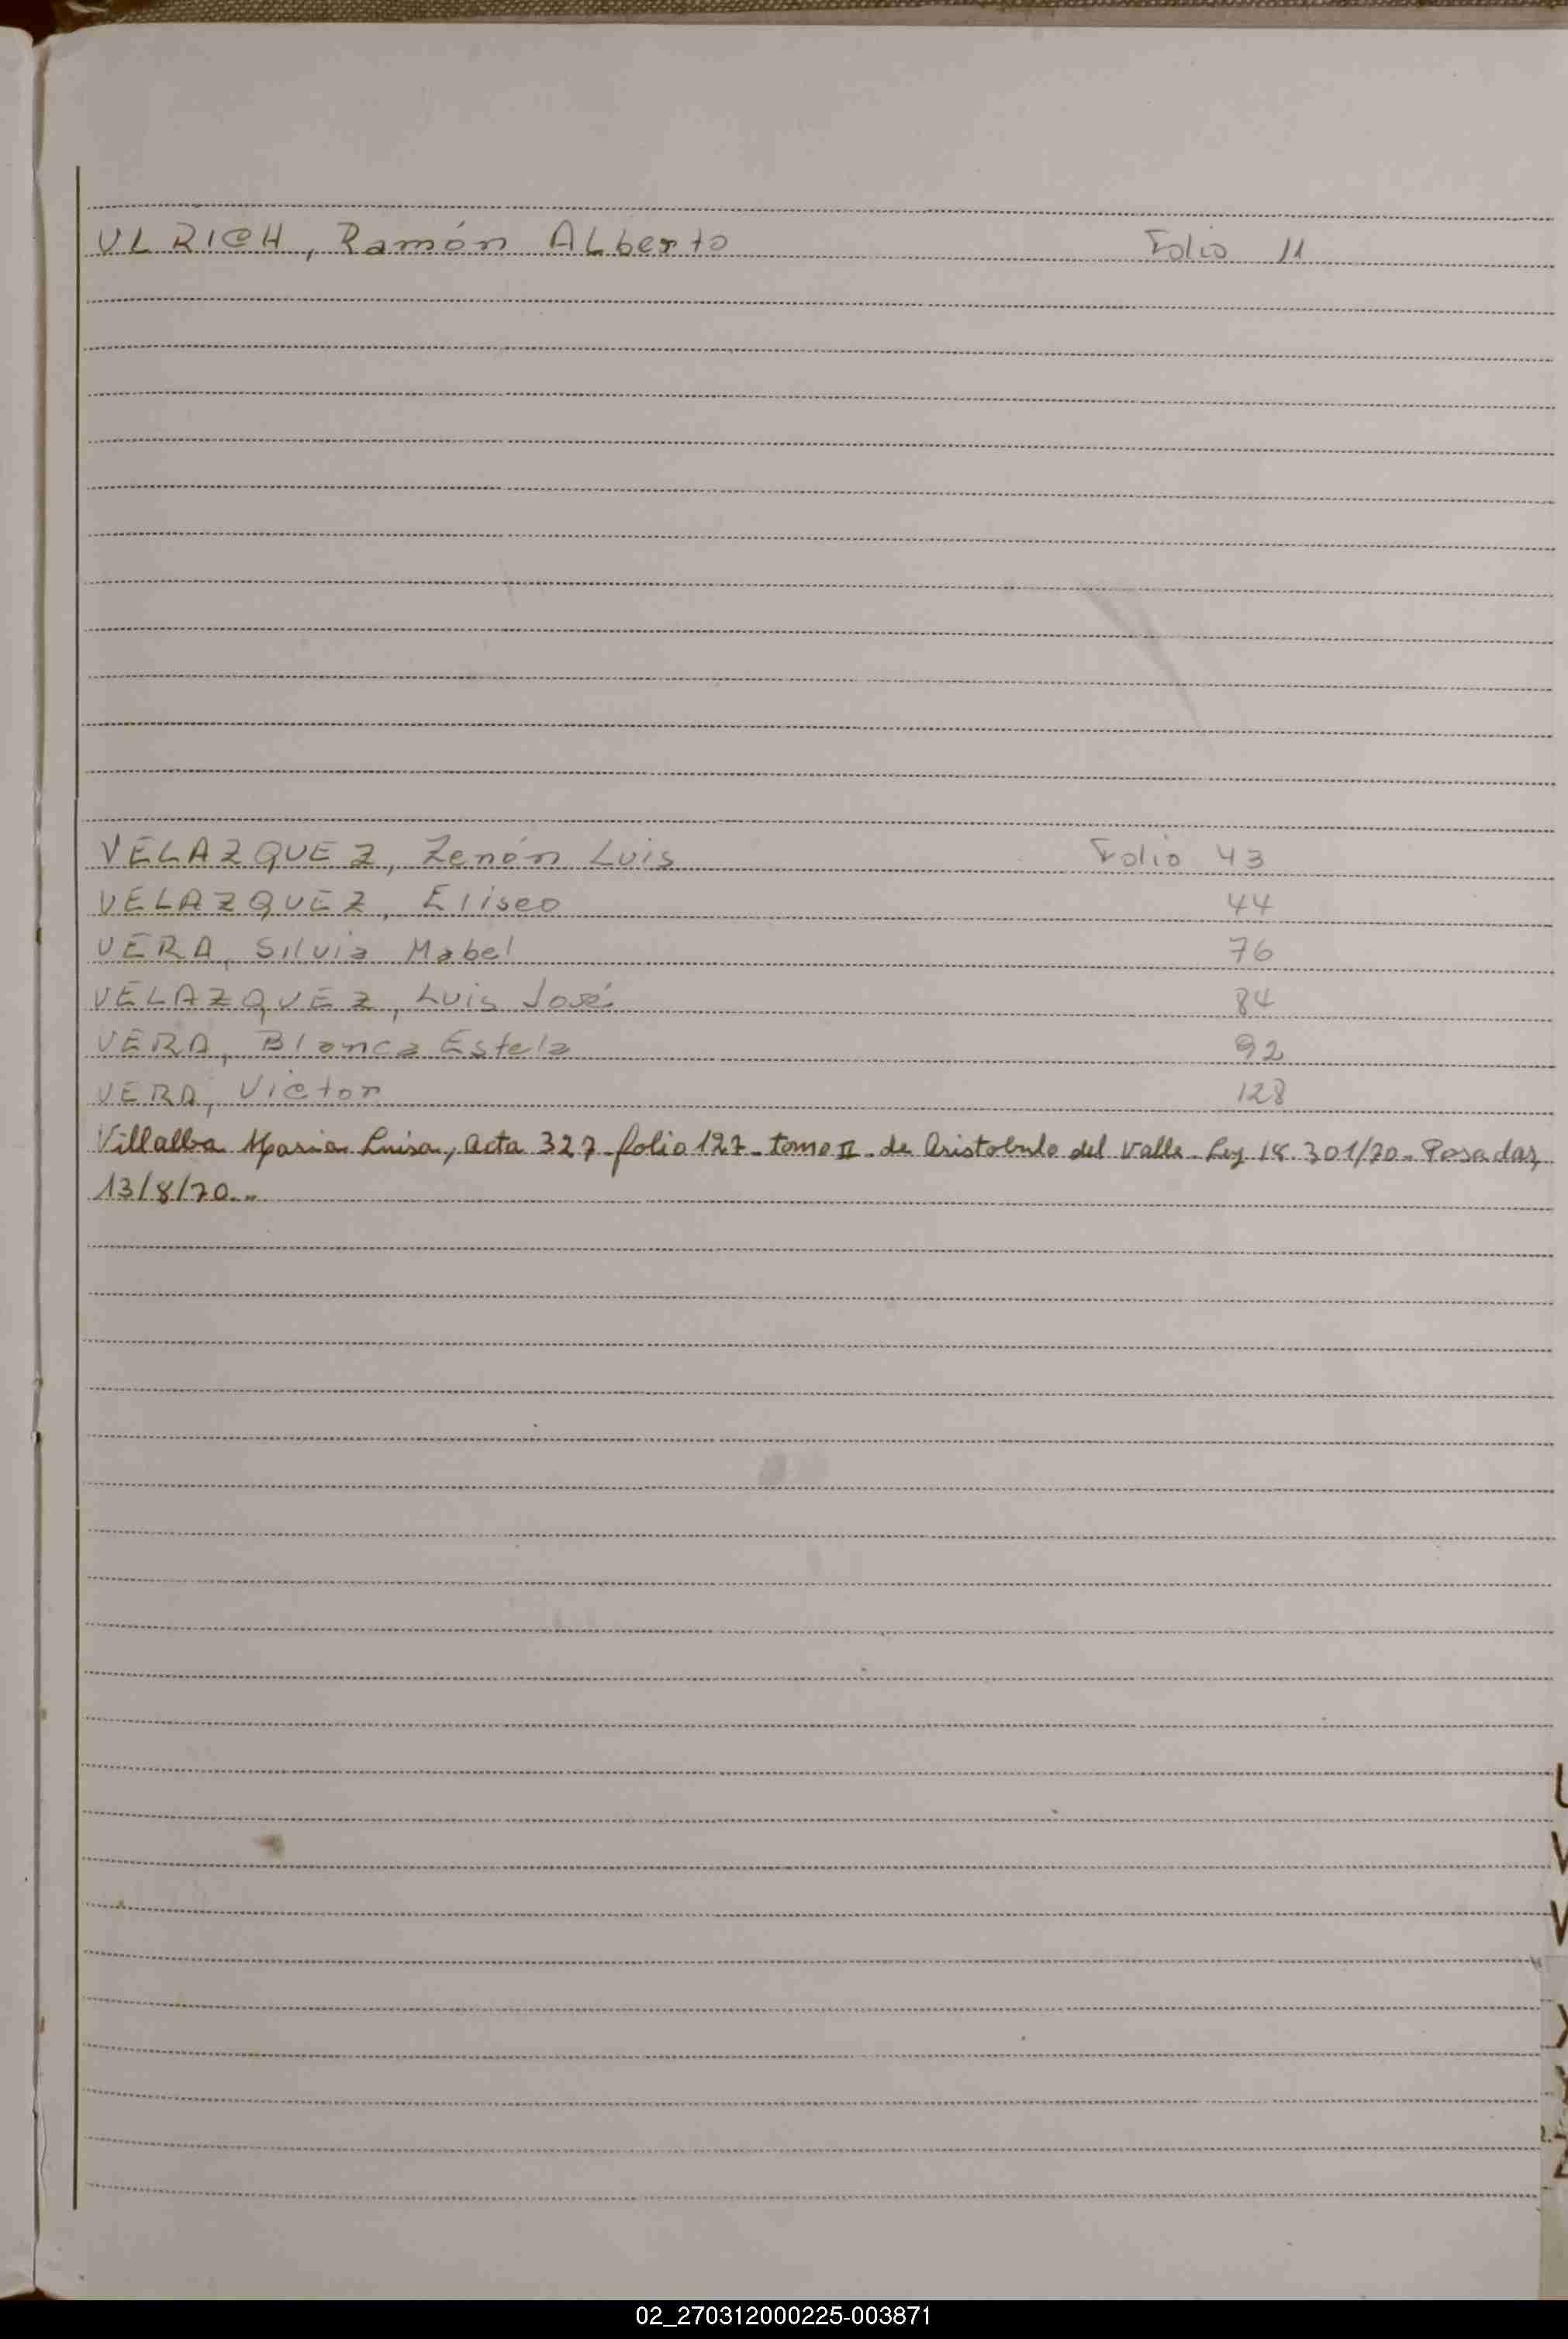 ULRICH, Ramón ALberto Folio 11
VELAZQUEZ, Zenón Luis Folio 43
VELAZQUEZ, Eliseo 44
VERA, Silvia Mabel 76
VELAZQUEZ, Luis José 84
VERA, Blanca Estela 92
VERA, Victor 128
Villalba Maria Luisa, acta 327 folio 127 tomo II de Aristobulo del Valle Ley 18.301/70 Posadas,
13/8/70
U
V
W
X
Y
Z
02_270312000225-003871